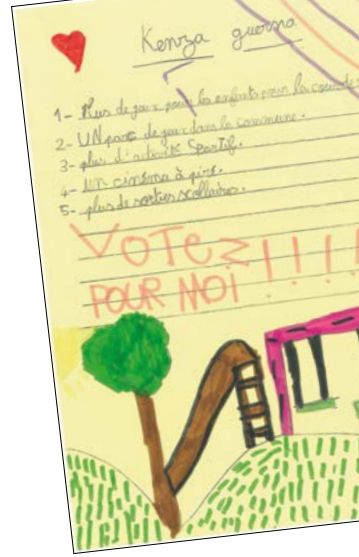 Kenza guerna
1- Plus de jeux pour les enfants pour la
2- UN parc de jeux dans la commune.
3- plus d'activité Sportif.
4- un cinéma à
5- plus de sorties scollaires.
VOTEZ!!!!
POUR MOI!